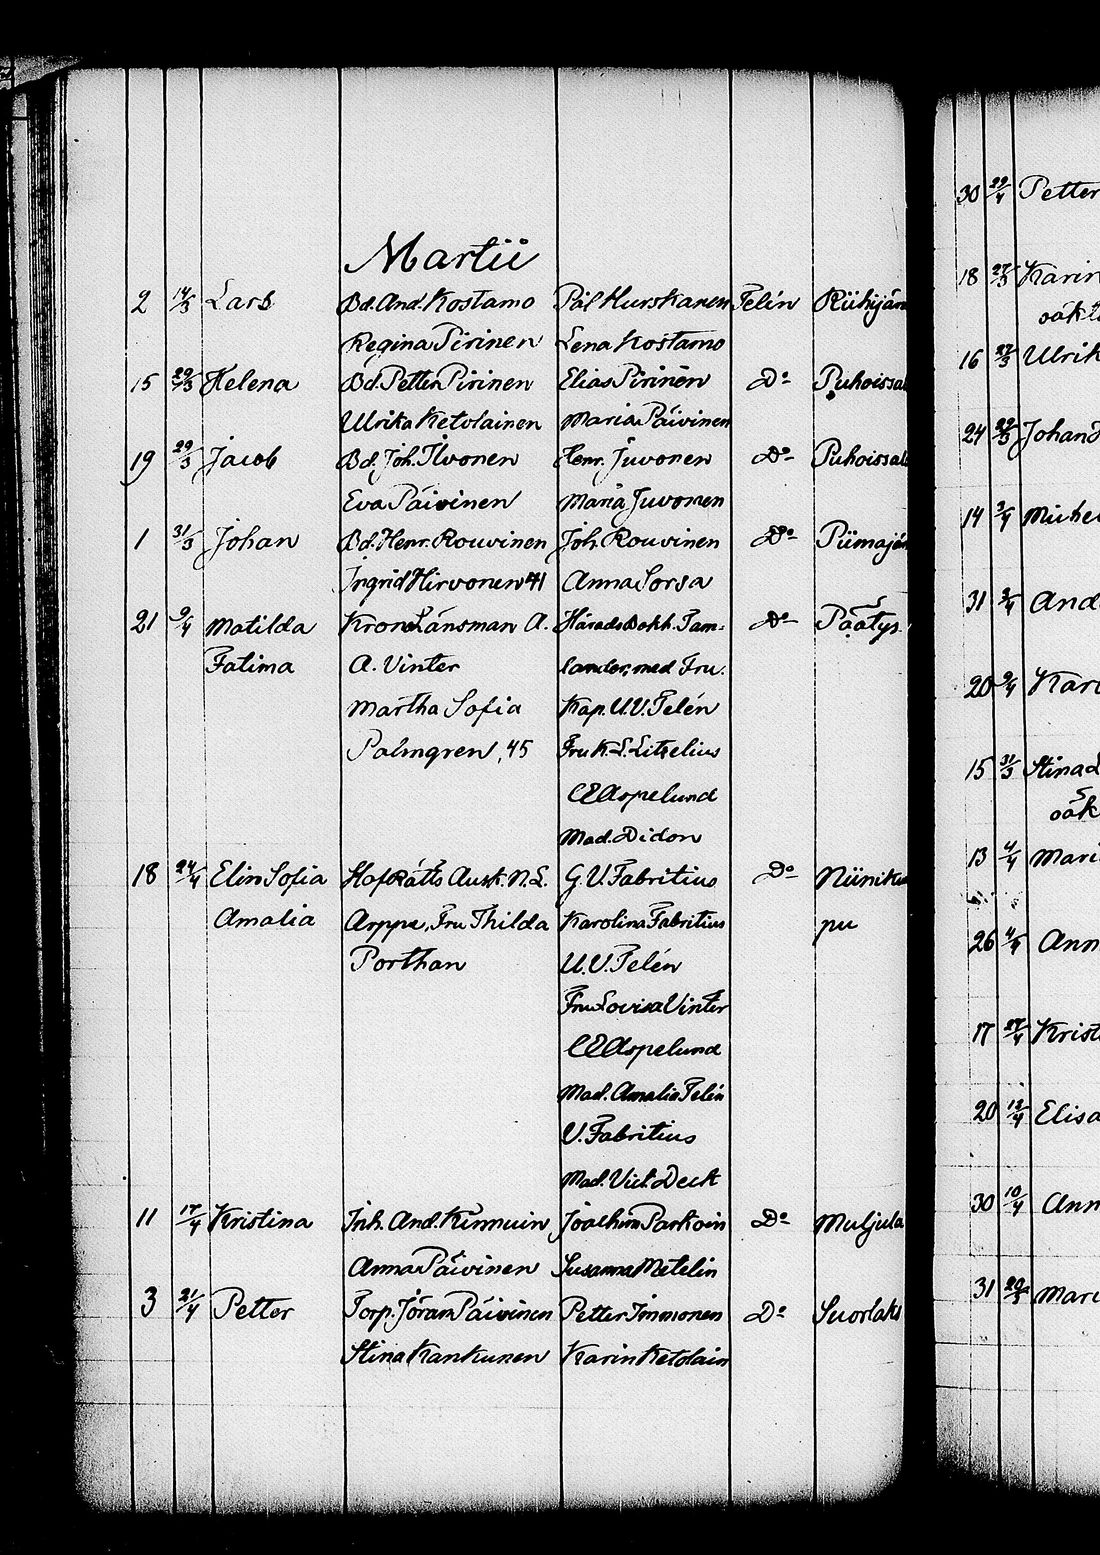 Martii
2 14/3 Lars Bd. And. Kostamo Pål Hurskanen Telén Riihijär
Regina Pirinen Lena Kostamo
15 29/3 Helena Bd. Petter Pirinen Elias Pirinen Do Puhoissal
Ulrika Ketolainen Maria Päivinen
19 29/3 Jacob Bd. Joh. Ilvonen Henr. Juvonen Do Puhoissal
Eva Päivinen Maria Juvonen
1 31/3 Johan Bd. Henr. Rouvinen Joh. Rouvinen Do Piimajär
Ingrid Hirvonen 41 Anna Sorsa
21 9/4 Matilda Krono Länsman A. Härads Bokh. Tam- Do Päätys
Fatima A. Vinter lander, med Fru.
Martha Sofia Kap. U.V. Telén
Palmgren, 45 Fru K. L. Litzelius
CE Aspelund
Mad. Didon
18 24/4 Elin Sofia Hofrätts Ausk. N. L. G. V. Fabritius Do Niiniku
Amalia Arppe, Fru Thilda Karolina Fabritius pu
Porthan U. V. Telén
Fru Lovisa Vinter
CE Aspelund
Mad. Amalia Telén
V. Fabritius
Mad. Vict. Deck
11 17/4 Kristina Inh. And. Kinnuin Joachim Parkoin Do Muljula
Anna Päivinen Susanna Metelin
3 21/4 Petter Torp. Jöran Päivinen Petter Immonen Do Suorlaks
Stina Kankunen Karin Ketolain
30 29/4 Petter
18 27/3 Karin
oäkta
16 27/3 Ulrik
24 29/3 Johan
14 3/4 Michel
31 3/4 And
20 9/4 Kari
15 31/3 Stina L
oäk
13 4/4 Mari
26 4/4 Ann
17 17/4 Krist
20 12/4 Elisa
30 10/4 Ann
31 20/3 Mari